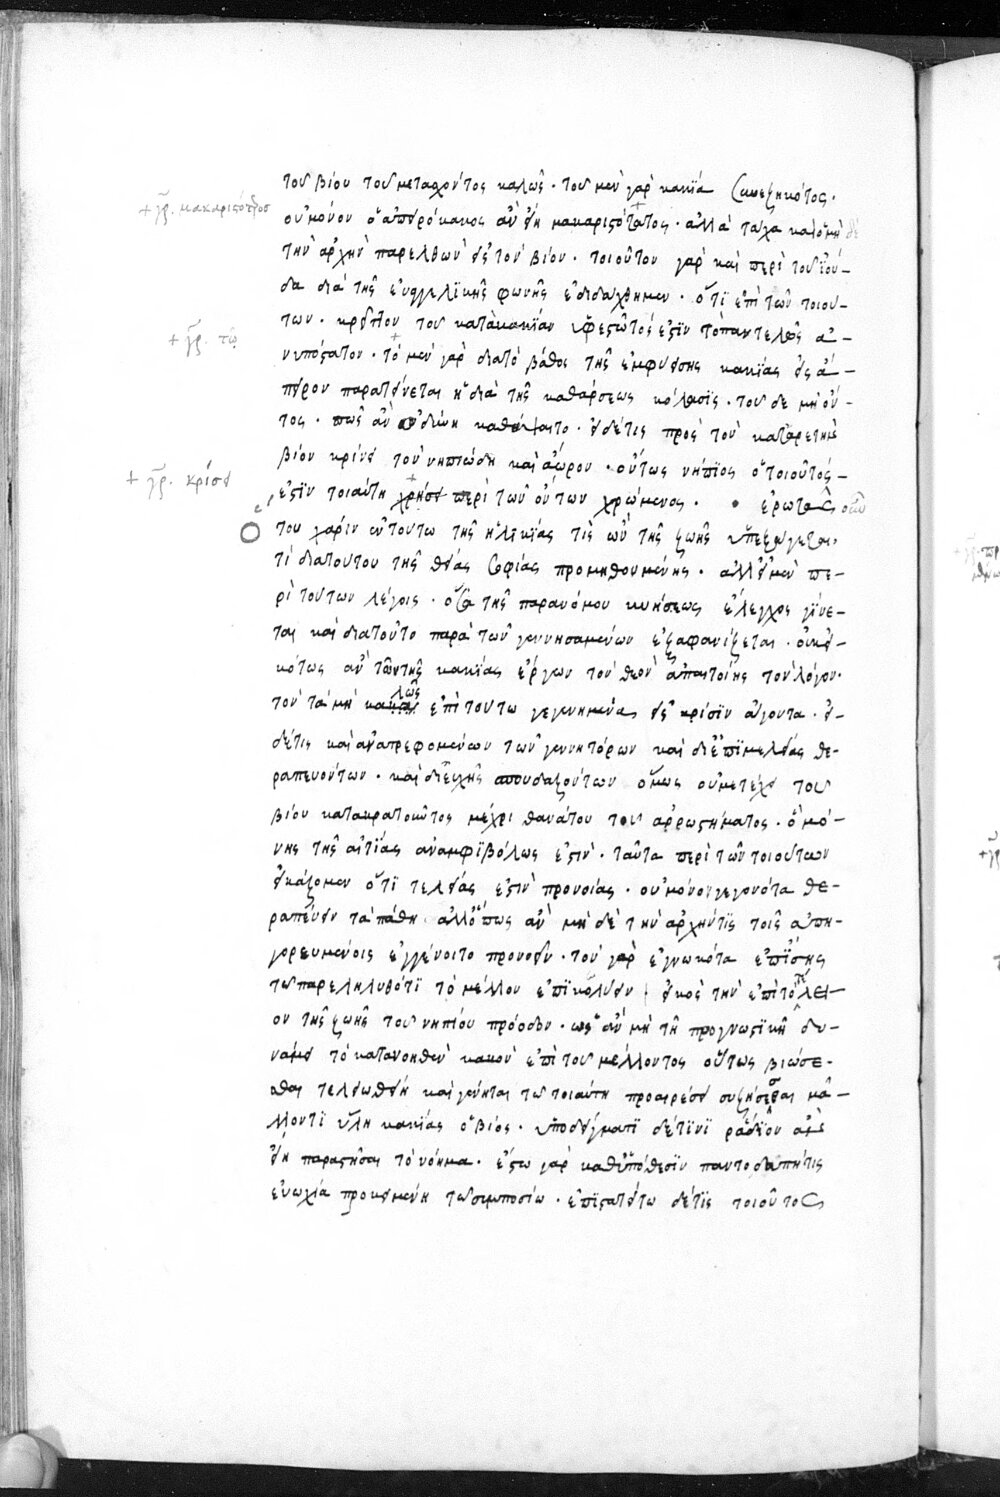 + γρ. μακαριστότερος
+ γρ. τῷ
+ γρ. κρίσει
του βίου του μεταχόντος καλῶς · του μεν γαρ κακία συνεζηκότος ·
ου μόνον ο απειρόκακος αν είη μακαριστότατος · αλλα τάχα και ο μη δε
την αρχην παρελθων εις τον βίον · τοιοῦτον γαρ και περι του ϊού-
δα δια της ευαγγελϊκης φωνης εδιδάχθημεν · οτϊ επι των τοιού-
των · κρεῖττον του κατα κακίαν υφεστῶτος εστϊν το παντελως α-
νυπόστατον · τὸ μεν γαρ δια το βάθος της εμφυείσης κακίας εις ά-
πειρον παρατείνεται η δια της καθάρσεως κόλασις · του δε μη όν-
τος · πῶς αν οδύνη καθάψαιτο · ει δέ τις προς τον κατ αρετην
βίον κρίνει τον νηπιώδη και άωρον · ούτως νήπϊος ο τοιοῦτός
εστϊν τοιαύτη χρήσει περι των όντων χρώμενος · ερωτᾶς οὖν
του χάριν εν τούτω της ηλϊκίας τις ων της ζωης υπεξάγεται ·
τί δια τούτου της θείας σοφίας προμηθουμένης · αλλ ει μεν πε-
ρι τούτων λέγοις · όσα της παρανόμου κυήσεως έλεγχος γίνε-
ται και δια τοῦτο παρα των γεννησαμένων εξαφανίζεται · ουκ ει-
κότως αν των της κακίας έργων τον θεον απαιτοίης τον λόγον ·
τον τα μη καλῶς επι τούτω γεγενημένα εις κρίσϊν άγοντα · ει
δέ τις και ανατρεφομένων των γεννητόρων και δι επϊμελείας θε-
ραπευόντων · και δι ευχης σπουδαζόντων όμως ου μετέχει του
βίου κατακρατοῦντος μέχρι θανάτου του αρρωστήματος · ο μό-
νης της αιτίας αναμφϊβόλως εστϊν · ταῦτα περι των τοιούτων
εικάζομεν ότϊ τελείας εστϊν προνοίας · ου μόνον γεγονότα θε-
ραπεύειν τα πάθη · αλλ όπως αν μη δε την αρχήν τις τοις απη-
γορευμένοις εγγένοιτο προνοεῖν · τον γαρ εγνωκότα επϊσης
τω παρεληλυθότϊ το μέλλον επϊκωλύειν εικος την επι το τέλει-
ον της ζωης του νηπίου πρόοδον · ως αν μη τη προγνωστϊκη δυ-
νάμει το κατανοηθεν κακον επι του μέλλοντος ούτως βιώσε-
σθαι τελειωθείη και γένηται τω τοιαύτη προαιρέσει συζήσεσθαι μέλ-
λοντϊ ύλη κακίας ο βίος · υποδείγματϊ δέ τϊνϊ ράδιον αν
είη παραστῆσαι το νόημα · έστω γαρ καθ υπόθεσϊν παντοδαπή τις
ευωχία προκειμένη τω συμποσίω · επϊστατείτω δέ τϊς τοιοῦτος